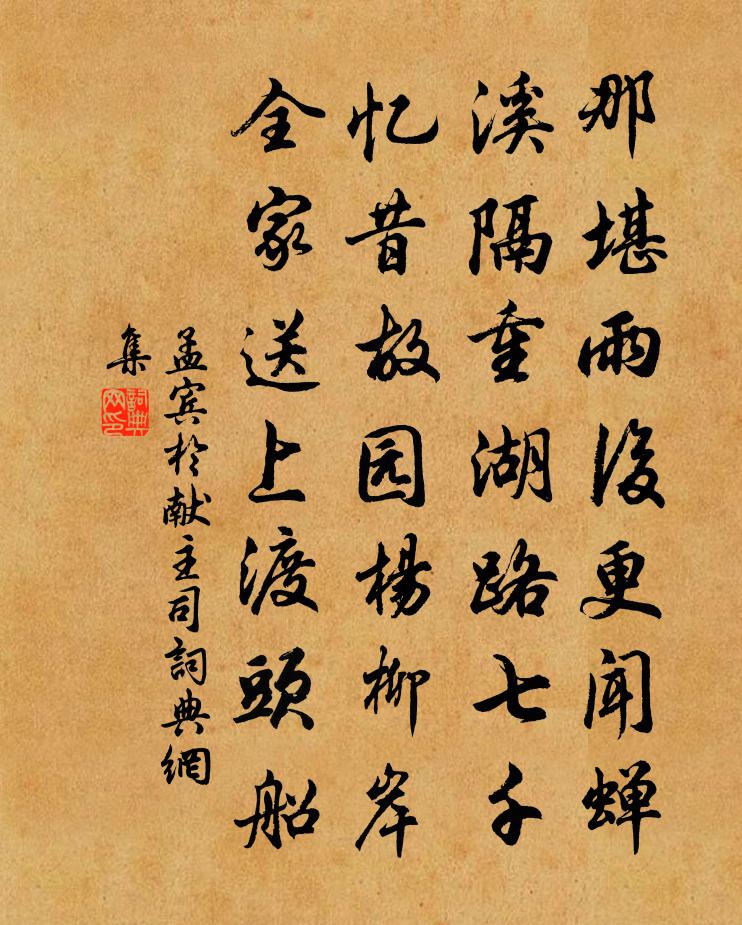 那堪雨後更闻蝉
溪隔重湖路七千
忆昔故园杨柳岸
全家送上渡頭船
孟宾於献主司詞典網
集
詞典
网印